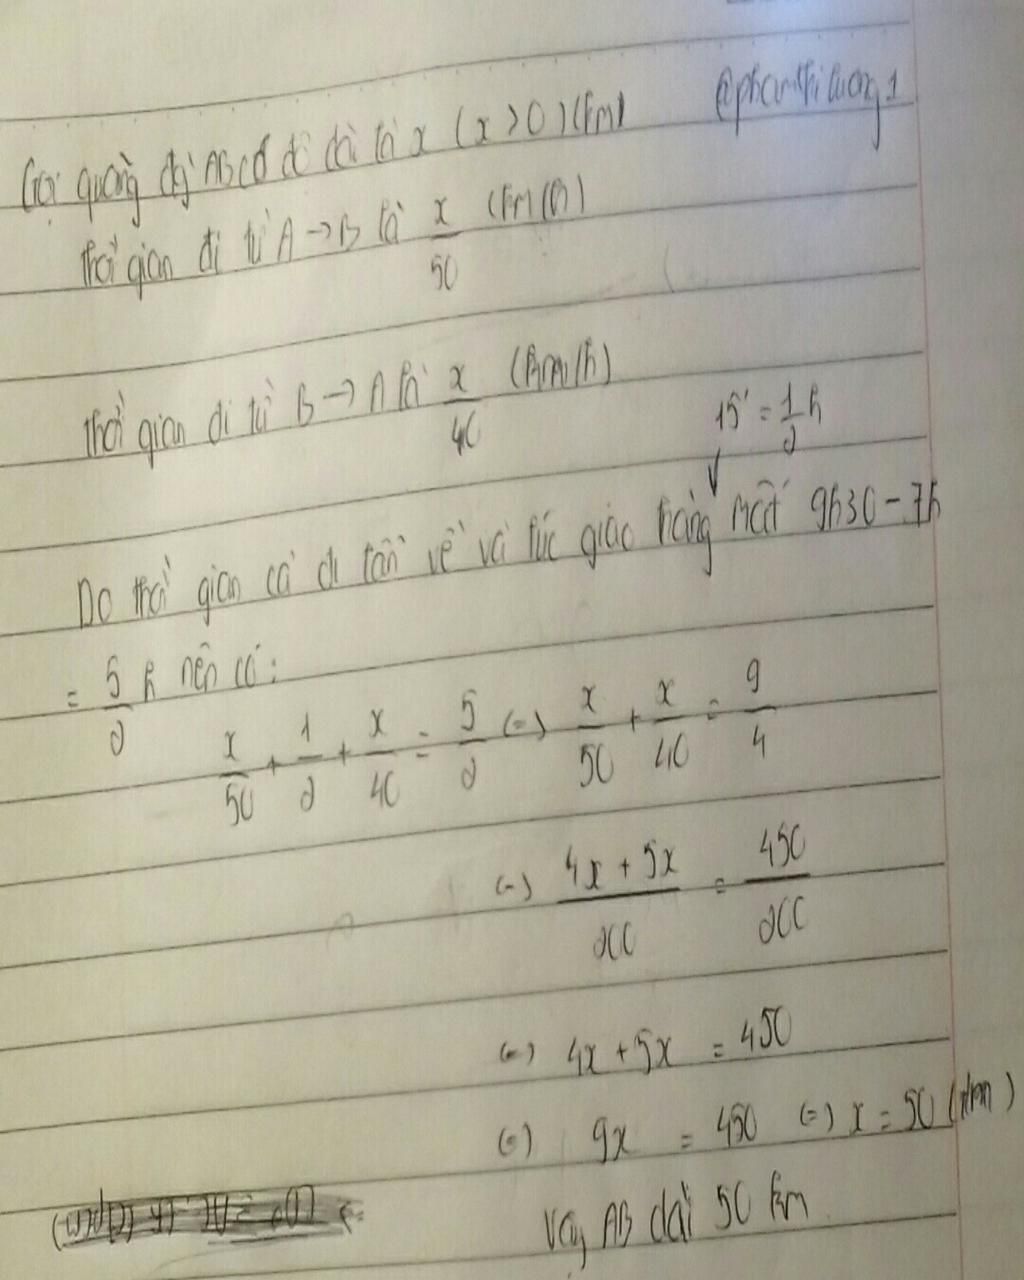 @phamthiluong1
Gọi quãng đg AB có độ dài là x (x > 0) (km)
Thời gian đi từ A → B là x/50 (km/h)
Thời gian đi từ B → A là x/40 (km/h)
15' = 1/2 h
Do thời gian cả đi lẫn về và lúc giao hàng mất 9h30 - 7h
= 5/2 h nên có:
x/50 + 1/2 + x/40 = 5/2 (=) x/50 + x/40 = 9/4
(=) (4x + 5x)/200 = 450/200
(=) 4x + 5x = 450
(=) 9x = 450 (=) x = 50 (km)
Vậy AB dài 50 km